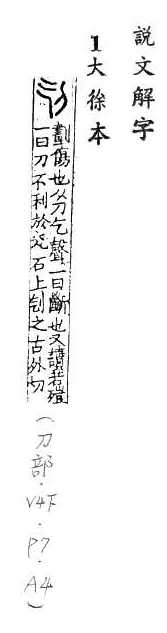 說文解字
1大徐本
劃傷也从刀乞聲一曰斷也又讀若殪
一曰刀不利於瓦石上刉之古外切
(刀部.V4下.P7.A4)